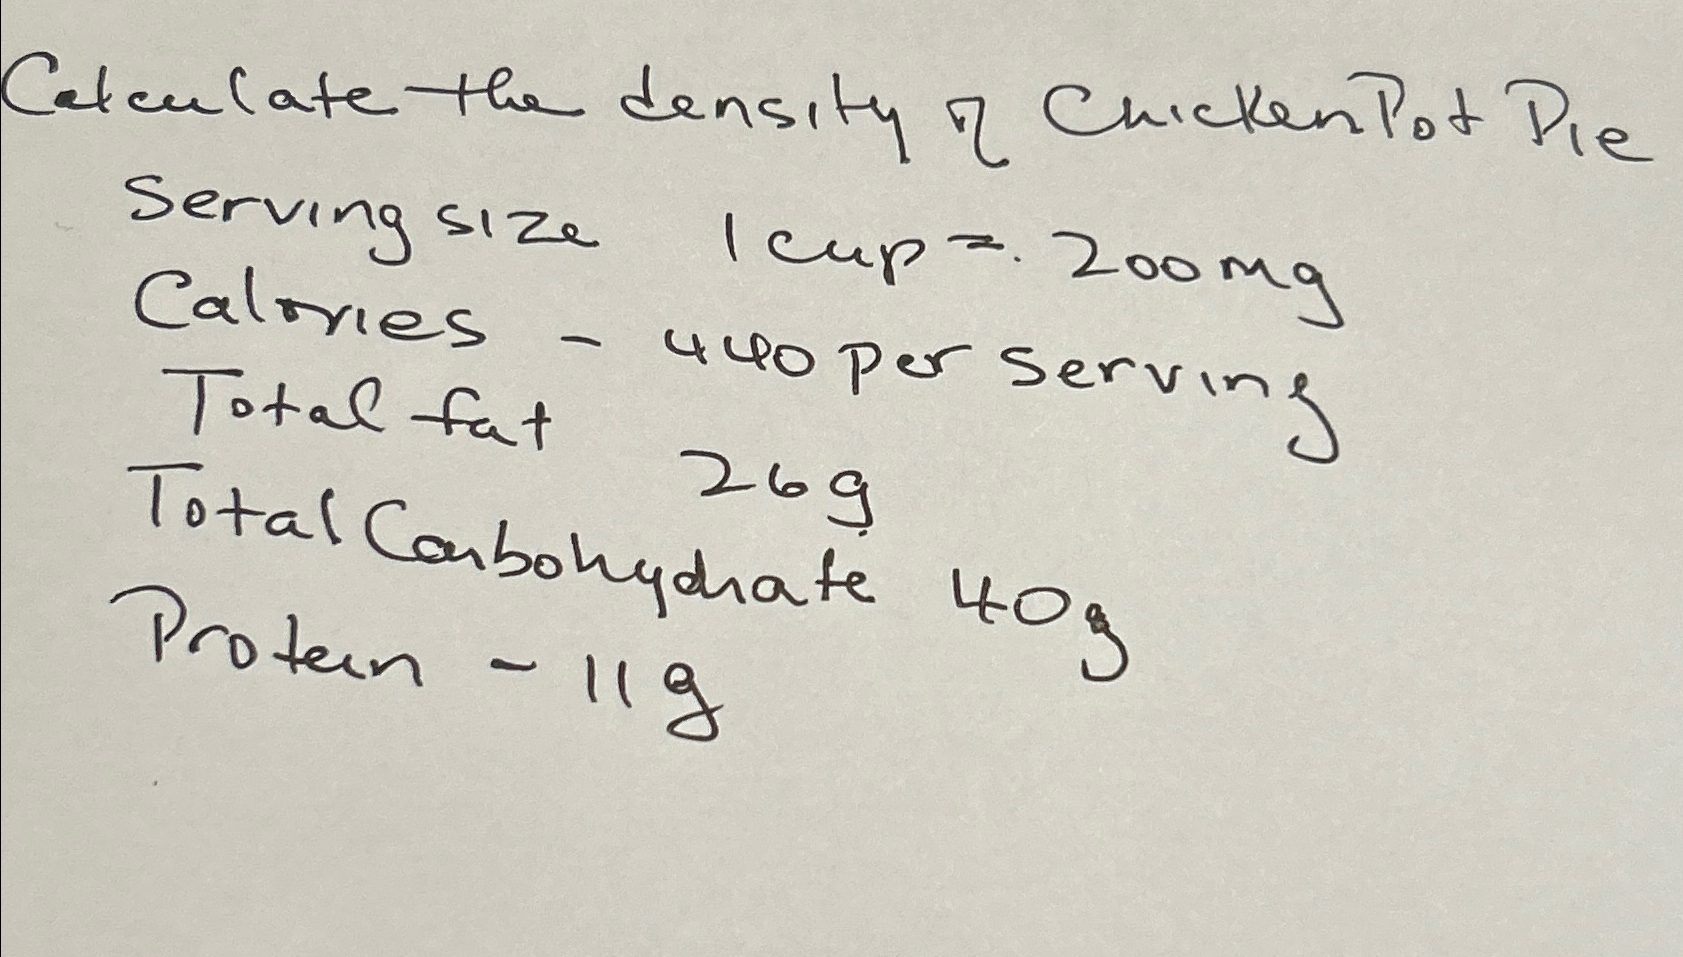 Calculate the density of Chicken Pot Pie
Serving size 1 cup = 200mg
Calories - 440 per serving
Total fat 26g
Total Carbohydrate 40g
Protein - 11g